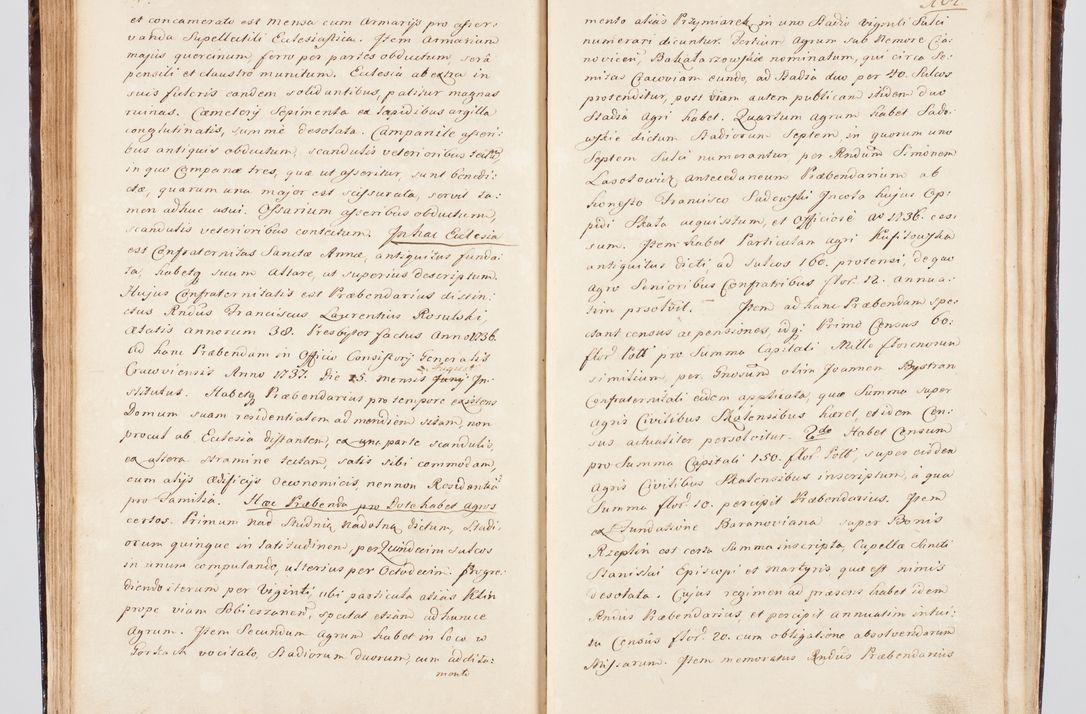 et concamerato est mensa cum Armarijs pro asser-
vanda Supellectili Ecclesiastica. Item Armarium
majus quercinum, ferro per partes obductum, serâ
pensili et claustro munitum. Ecclesia ab extra in
suis fulcris eandem solidantibus, patitur magnas
ruinas. Cæmeterij Sepimenta ex lapidibus argilla
conglutinatis, summè desolata. Campanile asseri-
bus antiquis obductum, scandulis veterioribus
in quo Campanæ tres, quæ ut asseritur, sunt benedi-
ctæ, quarum una major est scissurata, servit ta-
men adhuc usui. Ossarium asseribus obductum,
scandulis veterioribus contectum. In hac Ecclesia
est Confraternitas Sanctæ Annæ, antiquitus funda-
ta, habetq suum Altare, ut superius descriptum.
Hujus Confraternitatis est Præbendarius distin-
ctus Rndus Franciscus Laurentius Rosulski
ætatis annorum 38. Presbyter factus Anno 1736.
Ad hanc Præbendam in Officio Consistorij Generalis
Cracoviensis Anno 1737. Die 25. mensis Junij In-
August
stitutus. Habetq Præbendarius pro tempore existens
Domum suam residentialem ad meridiem sitam, non
procul ab Ecclesia distantem, ex una parte scandulis,
ex altera stramine tectam, satis sibi commodam,
cum alijs Ædificijs Oeconomicis, nennon Residentia
pro Familia. Hæc Præbenda pro Dote habet Agros
certos. Primum nad Studnią nadolną dictum, Stadi-
orum quinque in latitudinem, per Quindecim sulcos
in unum computando, ulterius per Octodecim. Progre-
diendo iterum per Viginti, ubi particula aliàs Klin
prope viam Sobieszanen, spectat etiam ad hunce
Agrum. Item Secundum Agrum habet in loco w
Gorkach vocitato, Stadiorum duorum, cum addita-
mento
mento aliàs Przymiarek, in uno Stadio viginti Sulci
numerari dicuntur. Tertium Agrum sub Nemore
novicen, Bakałarzowskie nominatum, qui circa Se-
mitas Cracoviam eundo, ad Stadia duo per 40. Sulcos
protenditur, post viam autem publicam itidem duo
Stadia agri habet. Quartum Agrum habet Sado-
wskie dictum Stadiorum Septem in quorum uno
Septem Sulci numerantur, per Rndum Simonem
Lasotowicz antecedaneum Præbendarium ab
honesto Francisco Sadowski Incola hujus Op-
pidi Skała acquisitum, et Officiosè Ao 1736. ces-
sum. Item habet Particulam agri
antiquitus dicti, ad sulcos 160. protensi, de quo
Agro Senioribus Confratribus flor. 12. annua-
tim prsolvit. Item ad hanc Præbendam spe-
ctant census ac pensiones idq: Primò Census 60.
flor. Poll pro Summa Capitali Mille florenorum
similium, per Gnosum olim Joannem Bystron
Confraternitati eidem applicata, quæ Summa super
Agris Civilibus Skalensibus hæret, et idem Cen-
sus actualiter persolvitur. 2do Habet Censum
pro Summa Capitali 150. flor. Poll, super eisdem
Agris Civilibus Skalensibus inscriptum, à qua
Summa flor. 10. percipit Præbendarius. Item
ex Fundatione Baranoviana super Bonis
Rzeplin est certa Summa inscripta, Capella Sancti
Stanislai Episcopi et Martyris quæ est nimis
desolata. Cujus regimen ad præsens habet idem
Rndus Præbendarius, et percipit annuatim intui-
tu Census flor. 20. cum obligatione absolvendarum
Missarum. Item memoratus Rndus Præbendarius